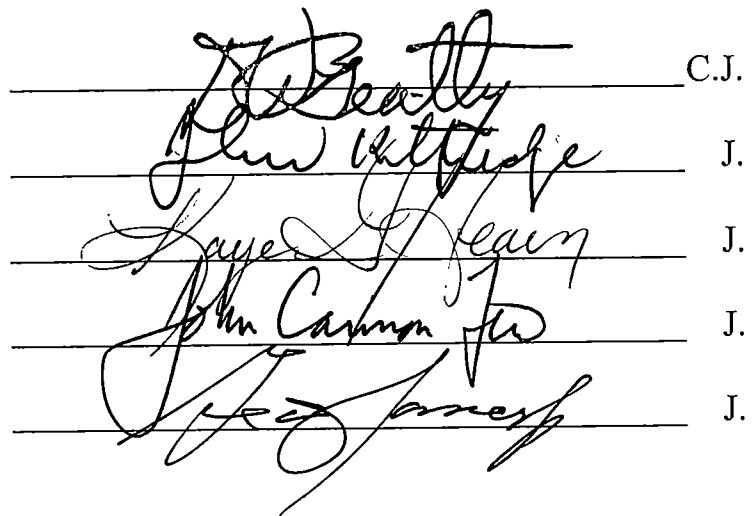 D W Beatty C.J.
John Kittredge J.
Kaye G Hearn J.
John Cannon Few J.
J.